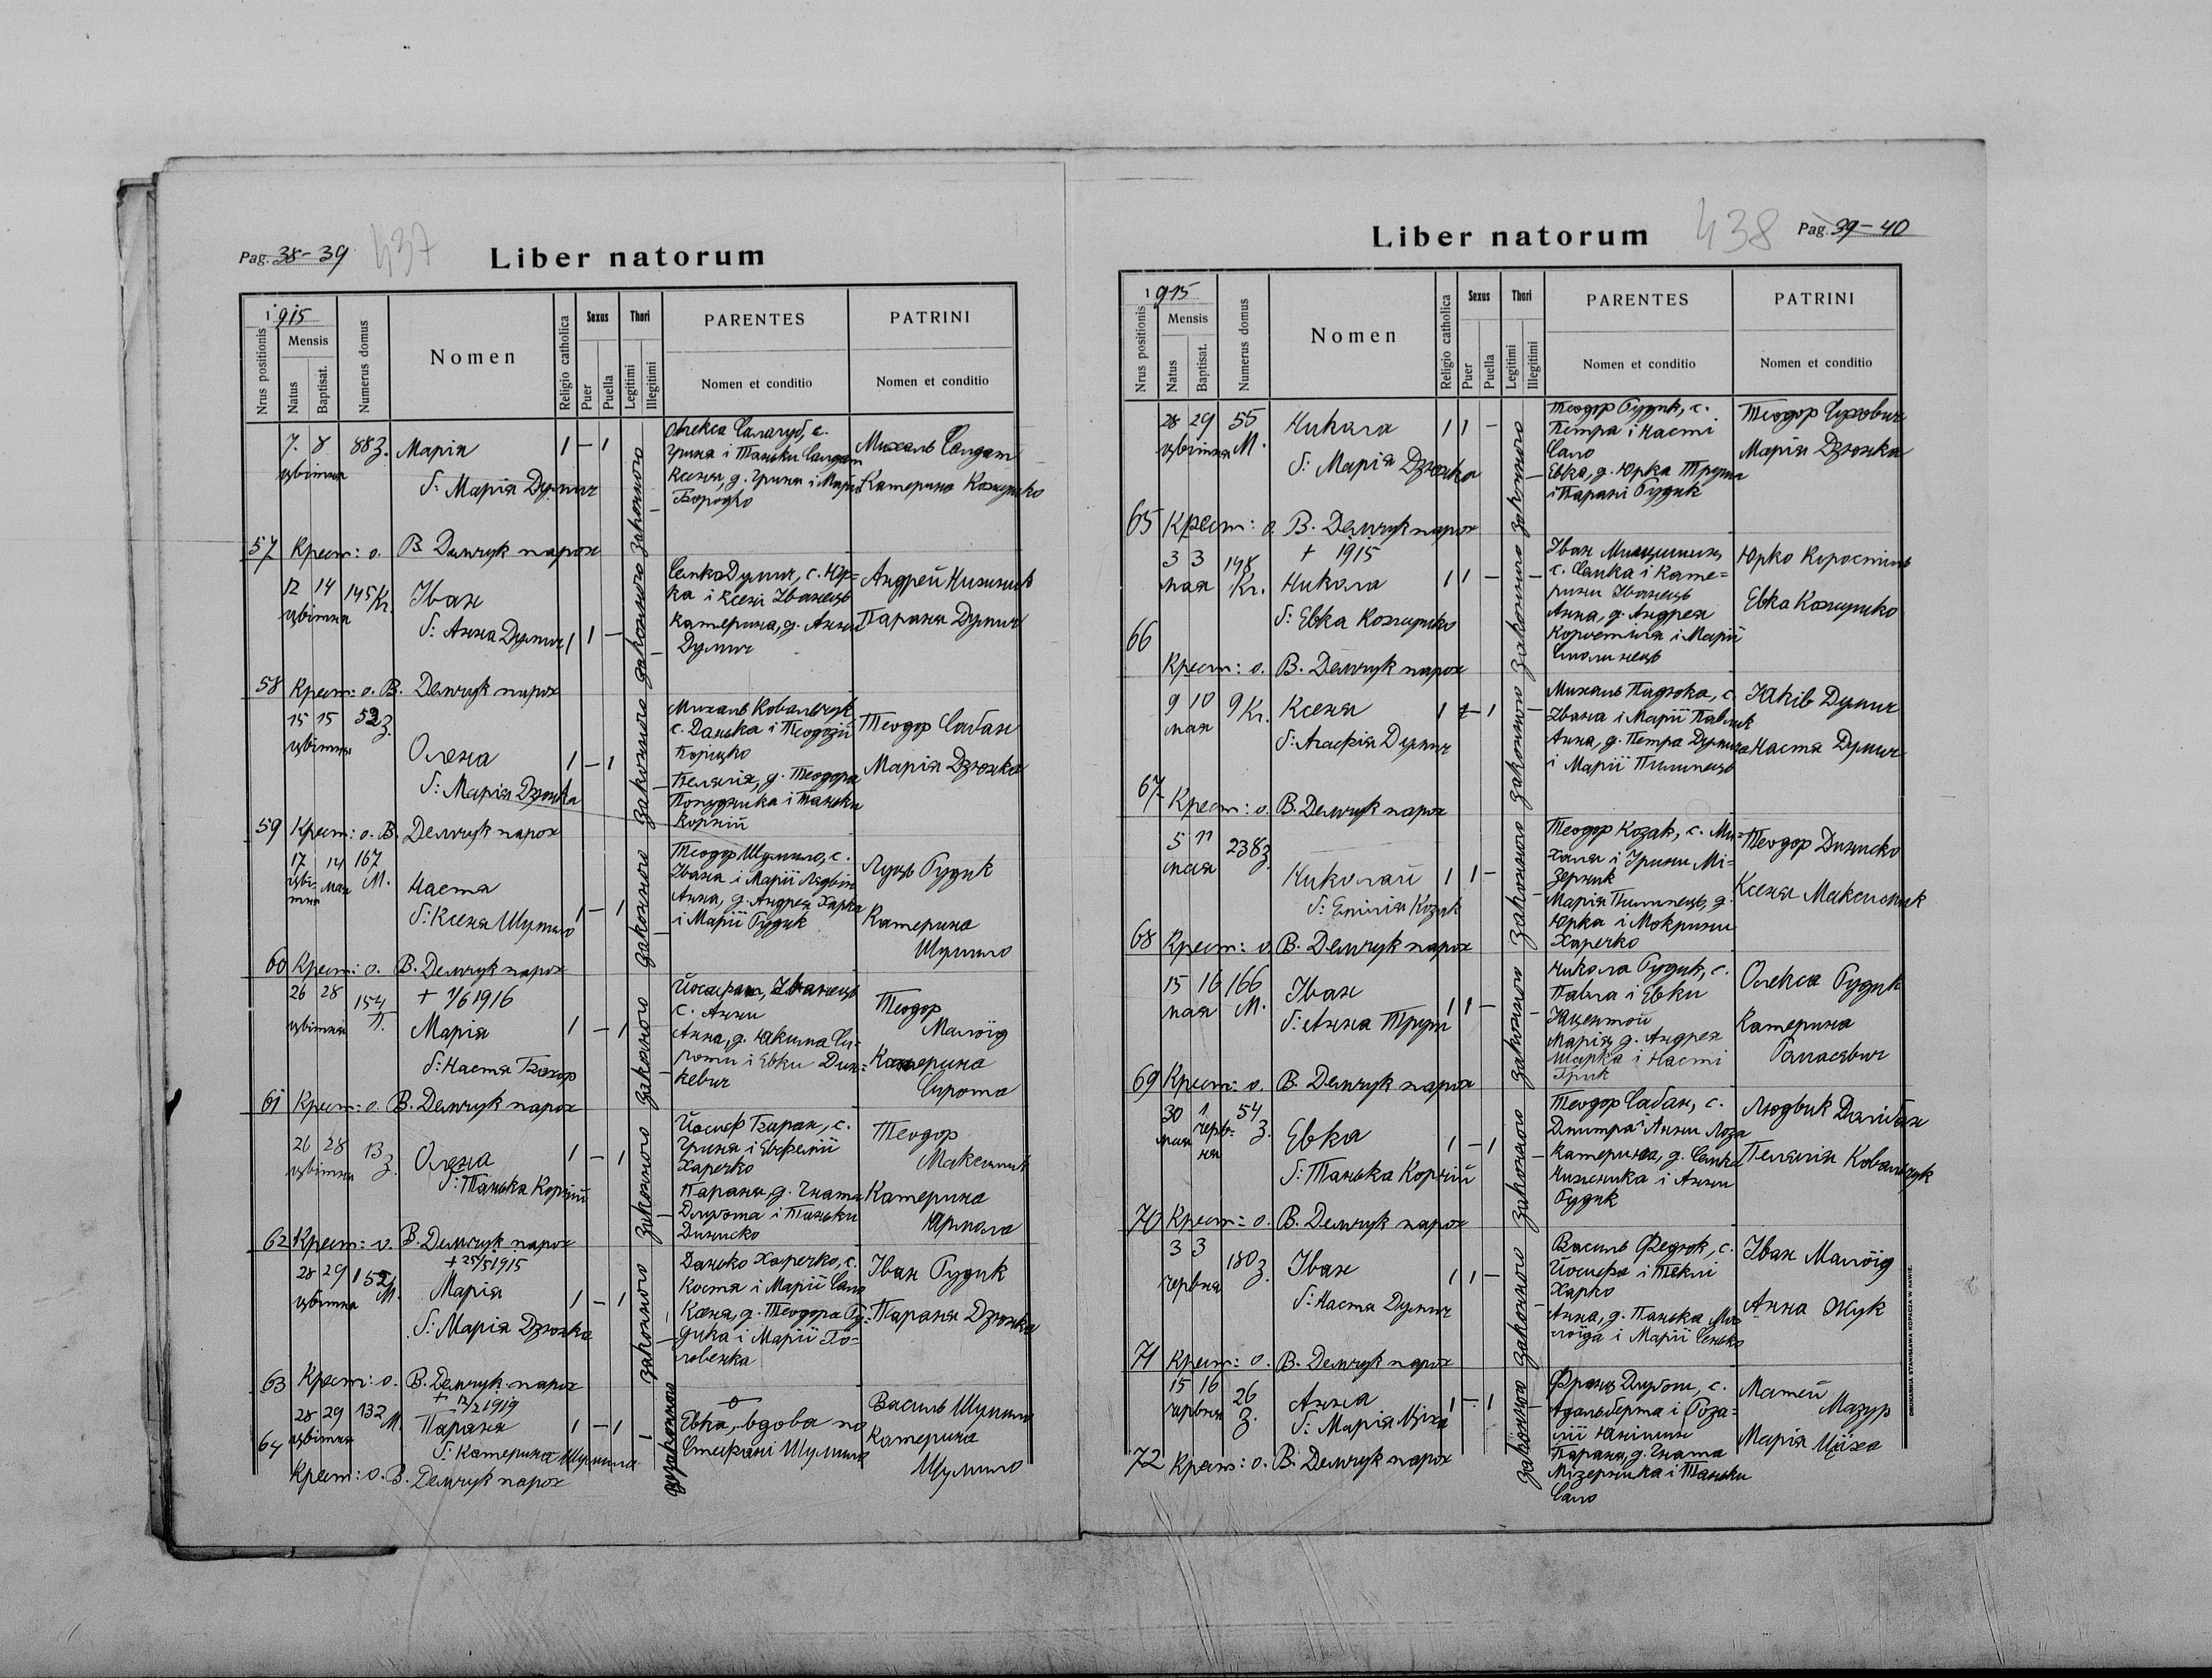 Pag. 38-39
437
Liber natorum
1915
Nrus positionis
Mensis
Natus
Baptisat.
Numerus domus
Nomen
Religio catholica
Sexus
Puer
Puella
Thori
Legitimi
Illegitimi
PARENTES
Nomen et conditio
PATRINI
Nomen et conditio
7. 8 88 З. Марія 1 – 1
цвітня
б: Марія Думич
законного
Олекса Салагуб, с.
Гриня і Таньки Солдат
Ксеня, д. Гриня і Марії
Бородко
Михаль Солдат
Катерина Кожушко
57 Крест: о. В. Демчук парох
12 14 145 Кг. Іван
цвітня
б: Анна Думич 1 1 –
законного
Сенко Думич, с. Юр=
ка і Ксені Іванець
Катерина, д. Анни
Думич
Андрей Нижник
Параня Думич
58 Крест: о. В. Демчук парох
15 15 52 З.
цвітня
Олена 1 – 1
б: Марія Дзюнка
законного
Михаль Ковальчук
с. Данька і Теодозії
Поріцко
Пелягія, д. Теодора
Полудника і Таньки
Корній
Теодор Сабан
Марія Дзюнка
59 Крест: о. В. Демчук парох
17 14 167
цві- мая М.
тня
Настя
б: Ксеня Шумило 1 – 1
законного
Теодор Шумило, с.
Івана і Марії
Анна, д. Андрея Харка
і Марії Гудик
Луць Гудик
Катерина
Шумило
60 Крест: о. В. Демчук парох
26 28 154 † 1/6 1916
цвітня П. Марія 1 – 1
б: Настя Бахор
законного
Йосафат, Іванець
с. Анни
Анна, д. Якима Си-
роти і Евки Дин=
кевич
Теодор
Малоїд
Катерина
Сирота
61 Крест: о. В. Демчук парох
26 28 13 З. Олена 1 – 1
цвітня
б: Танька Корній
законного
Йосиф Баран, с.
Гриня і Евфемії
Харечко
Параня, д. Гната
і Таньки
Дениско
Теодор
Максимик
Катерина
Ярмола
62 Крест: о. В. Демчук парох
† 25/5 1915
28 29 152 М. Марія 1 – 1
цвітня
б: Марія Дзюнка
законного
Данько Харечко, с.
Костя і Марії Сало
Ксеня, д. Теодора Гу-
дика і Марії Го=
ловенка
Іван Гудик
Параня Дзюнка
63 Крест: о. В. Демчук парох
† 12/2 1919
28 29 132 М. Параня 1 – 1
цвітня
б: Катерина Шумила
незаконного
0
Евка, вдова по
Стефані Шумило
Василь Шумило
Катерина
Шумило
64
Крест: о. В. Демчук парох
Liber natorum
438
Pag. 39-40
1915
Nrus positionis
Mensis
Natus
Baptisat.
Numerus domus
Nomen
Religio catholica
Sexus
Puer
Puella
Thori
Legitimi
Illegitimi
PARENTES
Nomen et conditio
PATRINI
Nomen et conditio
28 29 55 Никола 1 1 –
цвітня М.
б: Марія Дзюнка
законного
Теодор Гудик, с.
Петра і Насті
Сало
Евка, д. Юрка
і Парані Гудик
Теодор Чухович
Марія Дзюнка
65 Крест: о. В. Демчук парох
† 1915
3 3 148 Никола 1 1 –
мая Кг.
б: Евка Кожушко
законного
Іван
с. Сенка і Кате=
рини Іванець
Анна, д. Андрея
Коростіля і Марії
Смолинець
Юрко Коростіль
Евка Кожушко
66
Крест: о. В. Демчук парох
9 10 9 Кг. Ксеня 1 – 1
мая
б: Агафія Думич
законного
Михаль Падюка, с.
Івана і Марії Павлик
Анна, д. Петра Думича
і Марії Пилипець
Яків Думич
Настя Думич
67 Крест: о. В. Демчук парох
5 11 238 З.
мая
Николай 1 1 –
б: Емілія Козак
законного
Теодор Козак, с. Ми=
халя і Ірини Мі=
зерник
Марія Пилипець, д.
Юрка і Мокрини
Харечко
Теодор Дениско
Ксеня Максимик
68 Крест: о. В. Демчук парох
15 16 166 Іван 1 1 –
мая М.
б: Анна
законного
Никола Гудик, с.
Павла і Евки
Марія, д. Андрея
Шарка і Насті
Грик
Олекса Гудик
Катерина
69 Крест: о. В. Демчук парох
30 1 54 З.
мая черв-
ня
Евка 1 – 1
б: Танька Корній
законного
Теодор Сабан, с.
Дмитра і Анни Лоза
Катерина, д. Сенка
Нижника і Анни
Гудик
Людвик
Пелягія Ковальчук
70 Крест: о. В. Демчук парох
3 3 180 З. Іван 1 1 –
червня
б: Настя Думич
законного
Василь Федюк, с.
Йосифа і Теклі
Харко
Анна, д. Панька Ма-
лоїда і Марії Сенько
Іван Малоїд
Анна Жук
71 Крест: о. В. Демчук парох
15 16 26 З. Анна 1 – 1
червня
б: Марія Ціха
законного
Франц, с.
Адальберта і Роза=
лії
Параня, д. Гната
Мізерника і Таньки
Сало
Матей
Мазур
Марія Ціха
72 Крест: о. В. Демчук парох
DRUKARNIA STANISŁAWA KOPACZA W RAWIE.